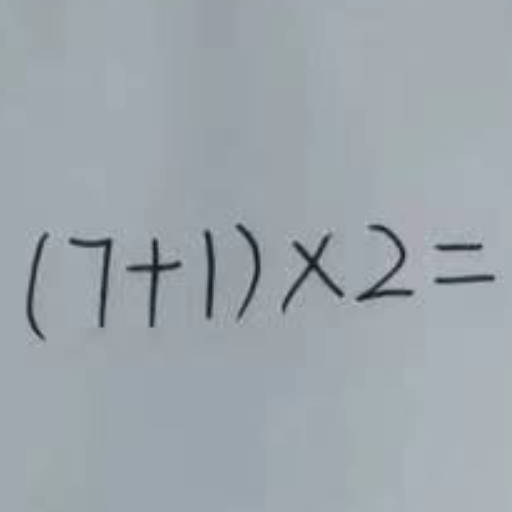 (7+1)×2=